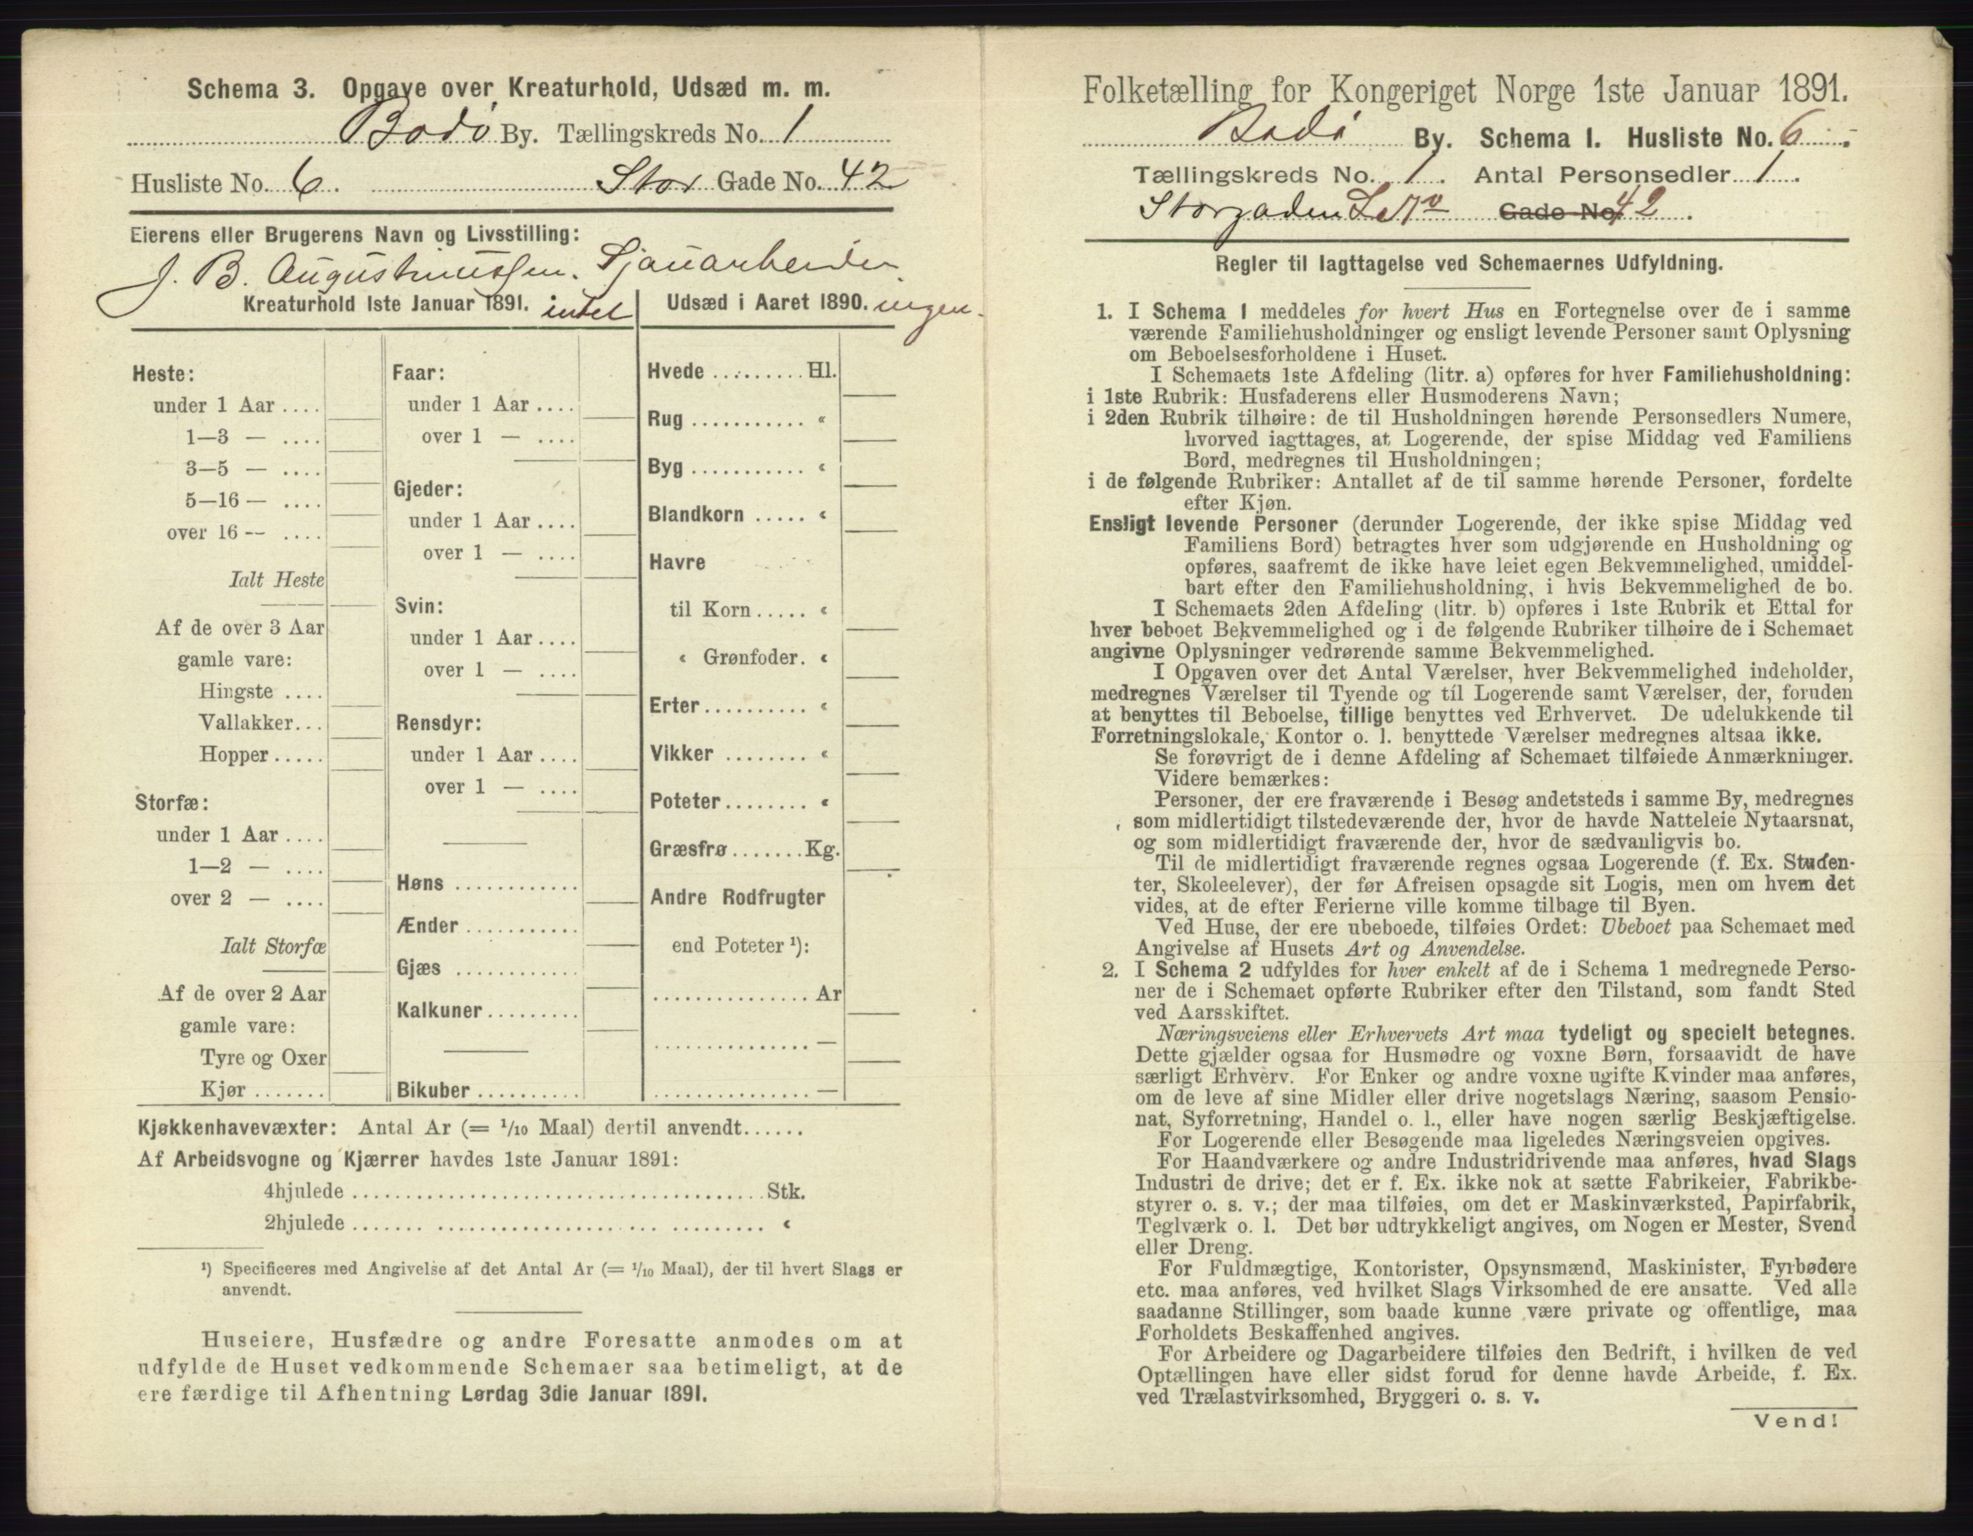 Schema 3. Opgave over Kreaturhold, Udsæd m. m.
Bodø By. Tællingskreds No. 1
Husliste No. 6. Stor Gade No. 42
Eierens eller Brugerens Navn og Livsstilling:
J. B. Augustinussen. Sjauarbeider
Kreaturhold 1ste Januar 1891. intet
Udsæd i Aaret 1890. ingen.
Heste:
under 1 Aar ....
1—3 — ....
3—5 — ....
5—16 — ....
over 16 — ....
Ialt Heste
Af de over 3 Aar
gamle vare:
Hingste ....
Vallakker...
Hopper.....
Storfæ:
under 1 Aar ....
1—2 — ....
over 2 — ....
Ialt Storfæ
Af de over 2 Aar
gamle vare:
Tyre og Oxer
Kjør .......
Faar:
under 1 Aar ....
over 1 — ....
Gjeder:
under 1 Aar ....
over 1 — ....
Svin:
under 1 Aar ....
over 1 — ....
Rensdyr:
under 1 Aar ....
over 1 — ....
Høns ...........
Ænder ...........
Gjæs ...........
Kalkuner.........
Bikuber ..........
Hvede ......... Hl.
Rug ........... «
Byg ........... «
Blandkorn ..... «
Havre
til Korn ..... «
« Grønfoder. «
Erter.......... «
Vikker ........ «
Poteter ........ «
Græsfrø ....... Kg.
Andre Rodfrugter
end Poteter ¹):
............... Ar
............... —
............... —
Kjøkkenhavevæxter: Antal Ar (= 1/10 Maal) dertil anvendt......
Af Arbeidsvogne og Kjærrer havdes 1ste Januar 1891:
4hjulede ...................................... Stk.
2hjulede ...................................... «
¹) Specificeres med Angivelse af det Antal Ar (= 1/10 Maal), der til hvert Slags er
anvendt.
Huseiere, Husfædre og andre Foresatte anmodes om at
udfylde de Huset vedkommende Schemaer saa betimeligt, at de
ere færdige til Afhentning Lørdag 3die Januar 1891.
Folketælling for Kongeriget Norge 1ste Januar 1891.
Bodø By. Schema 1. Husliste No. 6
Tællingskreds No. 1. Antal Personsedler 1.
Storgaden Gade No. 42.
Regler til Iagttagelse ved Schemaernes Udfyldning.
1. I Schema 1 meddeles for hvert Hus en Fortegnelse over de i samme
værende Familiehusholdninger og ensligt levende Personer samt Oplysning
om Beboelsesforholdene i Huset.
I Schemaets 1ste Afdeling (litr. a) opføres for hver Familiehusholdning:
i 1ste Rubrik: Husfaderens eller Husmoderens Navn;
i 2den Rubrik tilhøire: de til Husholdningen hørende Personsedlers Numere,
hvorved iagttages, at Logerende, der spise Middag ved Familiens
Bord, medregnes til Husholdningen;
i de følgende Rubriker: Antallet af de til samme hørende Personer, fordelte
efter Kjøn.
Ensligt levende Personer (derunder Logerende, der ikke spise Middag ved
Familiens Bord) betragtes hver som udgjørende en Husholdning og
opføres, saafremt de ikke have leiet egen Bekvemmelighed, umiddel-
bart efter den Familiehusholdning, i hvis Bekvemmelighed de bo.
I Schemaets 2den Afdeling (litr. b) opføres i 1ste Rubrik et Ettal for
hver beboet Bekvemmelighed og i de følgende Rubriker tilhøire de i Schemaet
angivne Oplysninger vedrørende samme Bekvemmelighed.
I Opgaven over det Antal Værelser, hver Bekvemmelighed indeholder,
medregnes Værelser til Tyende og til Logerende samt Værelser, der, foruden
at benyttes til Beboelse, tillige benyttes ved Erhvervet. De udelukkende til
Forretningslokale, Kontor o. l. benyttede Værelser medregnes altsaa ikke.
Se forøvrigt de i denne Afdeling af Schemaet tilføiede Anmærkninger.
Videre bemærkes:
Personer, der ere fraværende i Besøg andetsteds i samme By, medregnes
som midlertidigt tilstedeværende der, hvor de havde Natteleie Nytaarsnat,
og som midlertidigt fraværende der, hvor de sædvanligvis bo.
Til de midlertidigt fraværende regnes ogsaa Logerende (f. Ex. Studen-
ter, Skoleelever), der før Afreisen opsagde sit Logis, men om hvem det
vides, at de efter Ferierne ville komme tilbage til Byen.
Ved Huse, der ere ubeboede, tilføies Ordet: Ubeboet paa Schemaet med
Angivelse af Husets Art og Anvendelse.
2. I Schema 2 udfyldes for hver enkelt af de i Schema 1 medregnede Perso-
ner de i Schemaet opførte Rubriker efter den Tilstand, som fandt Sted
ved Aarsskiftet.
Næringsveiens eller Erhvervets Art maa tydeligt og specielt betegnes.
Dette gjælder ogsaa for Husmødre og voxne Børn, forsaavidt de have
særligt Erhverv. For Enker og andre voxne ugifte Kvinder maa anføres,
om de leve af sine Midler eller drive nogetslags Næring, saasom Pensio-
nat, Syforretning, Handel o. l., eller have nogen særlig Beskjæftigelse.
For Logerende eller Besøgende maa ligeledes Næringsveien opgives.
For Haandværkere og andre Industridrivende maa anføres, hvad Slags
Industri de drive; det er f. Ex. ikke nok at sætte Fabrikeier, Fabrikbe-
styrer o. s. v.; der maa tilføies, om det er Maskinværksted, Papirfabrik,
Teglværk o. l. Det bør udtrykkeligt angives, om Nogen er Mester, Svend
eller Dreng.
For Fuldmægtige, Kontorister, Opsynsmænd, Maskinister, Fyrbødere
etc. maa anføres, ved hvilket Slags Virksomhed de ere ansatte. Ved alle
saadanne Stillinger, som baade kunne være private og offentlige, maa
Forholdets Beskaffenhed angives.
For Arbeidere og Dagarbeidere tilføies den Bedrift, i hvilken de ved
Optællingen have eller sidst forud for denne havde Arbeide, f. Ex.
ved Trælastvirksomhed, Bryggeri o. s. v.
Vend!